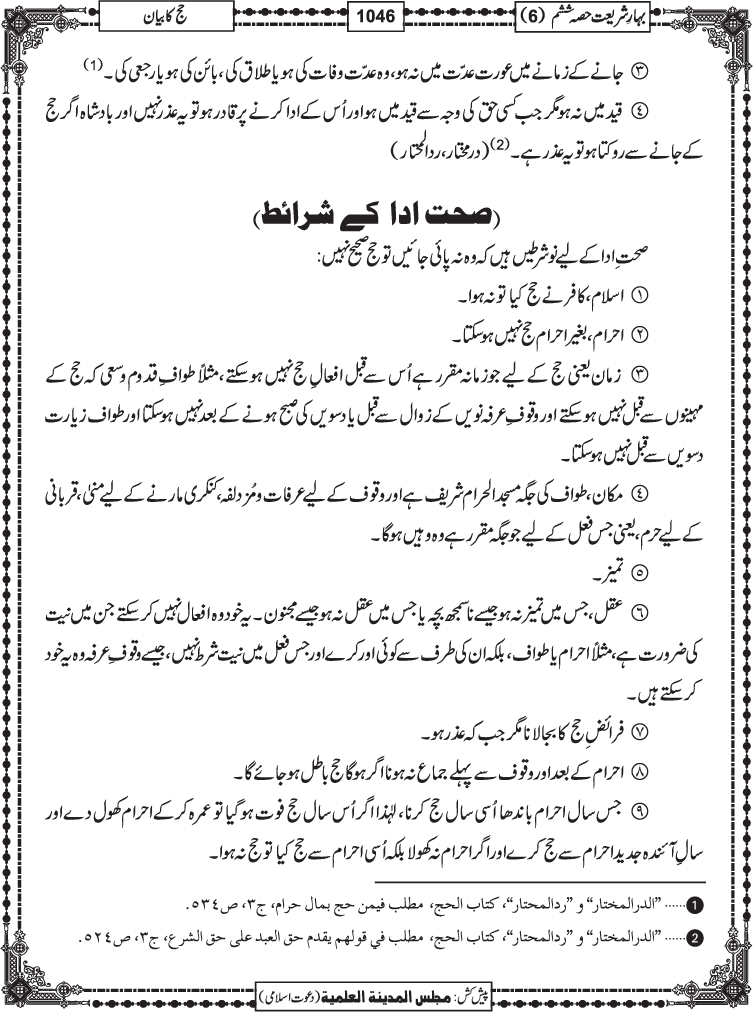 بہارِ شریعت حصہ ششم (6)
1046
حج کا بیان
③ جانے کے زمانے میں عورت عدّت میں نہ ہو، وہ عدّت وفات کی ہو یا طلاق کی، بائن کی ہو یا رجعی کی۔(1)
④ قید میں نہ ہو مگر جب کسی حق کی وجہ سے قید میں ہو اور اُس کے ادا کرنے پر قادر ہو تو یہ عذر نہیں اور بادشاہ اگر حج
کے جانے سے روکتا ہو تو یہ عذر ہے۔(2) (درمختار، ردالمحتار)
(صحت ادا کے شرائط)
صحتِ ادا کے لیے نو شرطیں ہیں کہ وہ نہ پائی جائیں تو حج صحیح نہیں:
① اسلام، کافر نے حج کیا تو نہ ہوا۔
② احرام، بغیر احرام حج نہیں ہوسکتا۔
③ زمان یعنی حج کے لیے جو زمانہ مقرر ہے اُس سے قبل افعالِ حج نہیں ہوسکتے، مثلاً طوافِ قدوم وسعی کہ حج کے
مہینوں سے قبل نہیں ہوسکتے اور وقوفِ عرفہ نویں کے زوال سے قبل یا دسویں کی صبح ہونے کے بعد نہیں ہوسکتا اور طواف زیارت
دسویں سے قبل نہیں ہوسکتا۔
④ مکان، طواف کی جگہ مسجد الحرام شریف ہے اور وقوف کے لیے عرفات و مُزدلفہ، کنکری مارنے کے لیے منیٰ، قربانی
کے لیے حرم، یعنی جس فعل کے لیے جو جگہ مقرر ہے وہ وہیں ہوگا۔
⑤ تمیز۔
⑥ عقل، جس میں تمیز نہ ہو جیسے ناسمجھ بچہ یا جس میں عقل نہ ہو جیسے مجنون۔ یہ خود وہ افعال نہیں کرسکتے جن میں نیت
کی ضرورت ہے، مثلاً احرام یا طواف، بلکہ ان کی طرف سے کوئی اور کرے اور جس فعل میں نیت شرط نہیں، جیسے وقوفِ عرفہ وہ یہ خود
کرسکتے ہیں۔
⑦ فرائضِ حج کا بجا لانا مگر جب کہ عذر ہو۔
⑧ احرام کے بعد اور وقوف سے پہلے جماع نہ ہونا اگر ہوگا حج باطل ہو جائے گا۔
⑨ جس سال احرام باندھا اُسی سال حج کرنا، لہٰذا اگر اُس سال حج فوت ہوگیا تو عمرہ کرکے احرام کھول دے اور
سالِ آئندہ جدید احرام سے حج کرے اور اگر احرام نہ کھولا بلکہ اُسی احرام سے حج کیا تو حج نہ ہوا۔
1...... "الدرالمختار" و "ردالمحتار"، كتاب الحج، مطلب فيمن حج بمال حرام، ج٣، ص٥٣٤.
2...... "الدرالمختار" و "ردالمحتار"، كتاب الحج، مطلب في قولهم يقدم حق العبد على حق الشرع، ج٣، ص٥٢٤.
پیش کش: مجلس المدینة العلمیة (دعوت اسلامی)